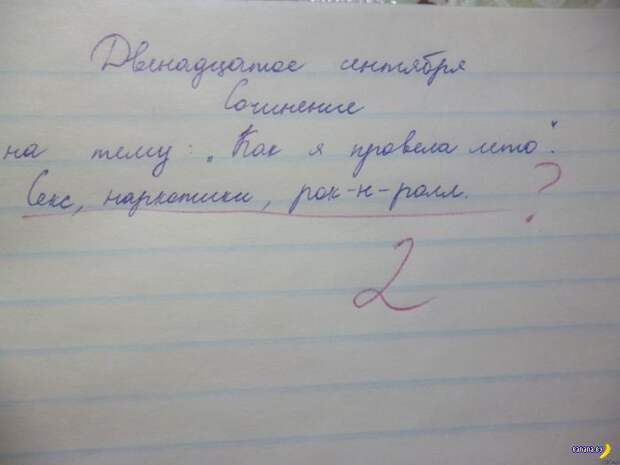 Двенадцатое сентября
Сочинение
на тему: „Как я провела лето".
Секс, наркотики, рок-н-ролл. ?
2
banana.by